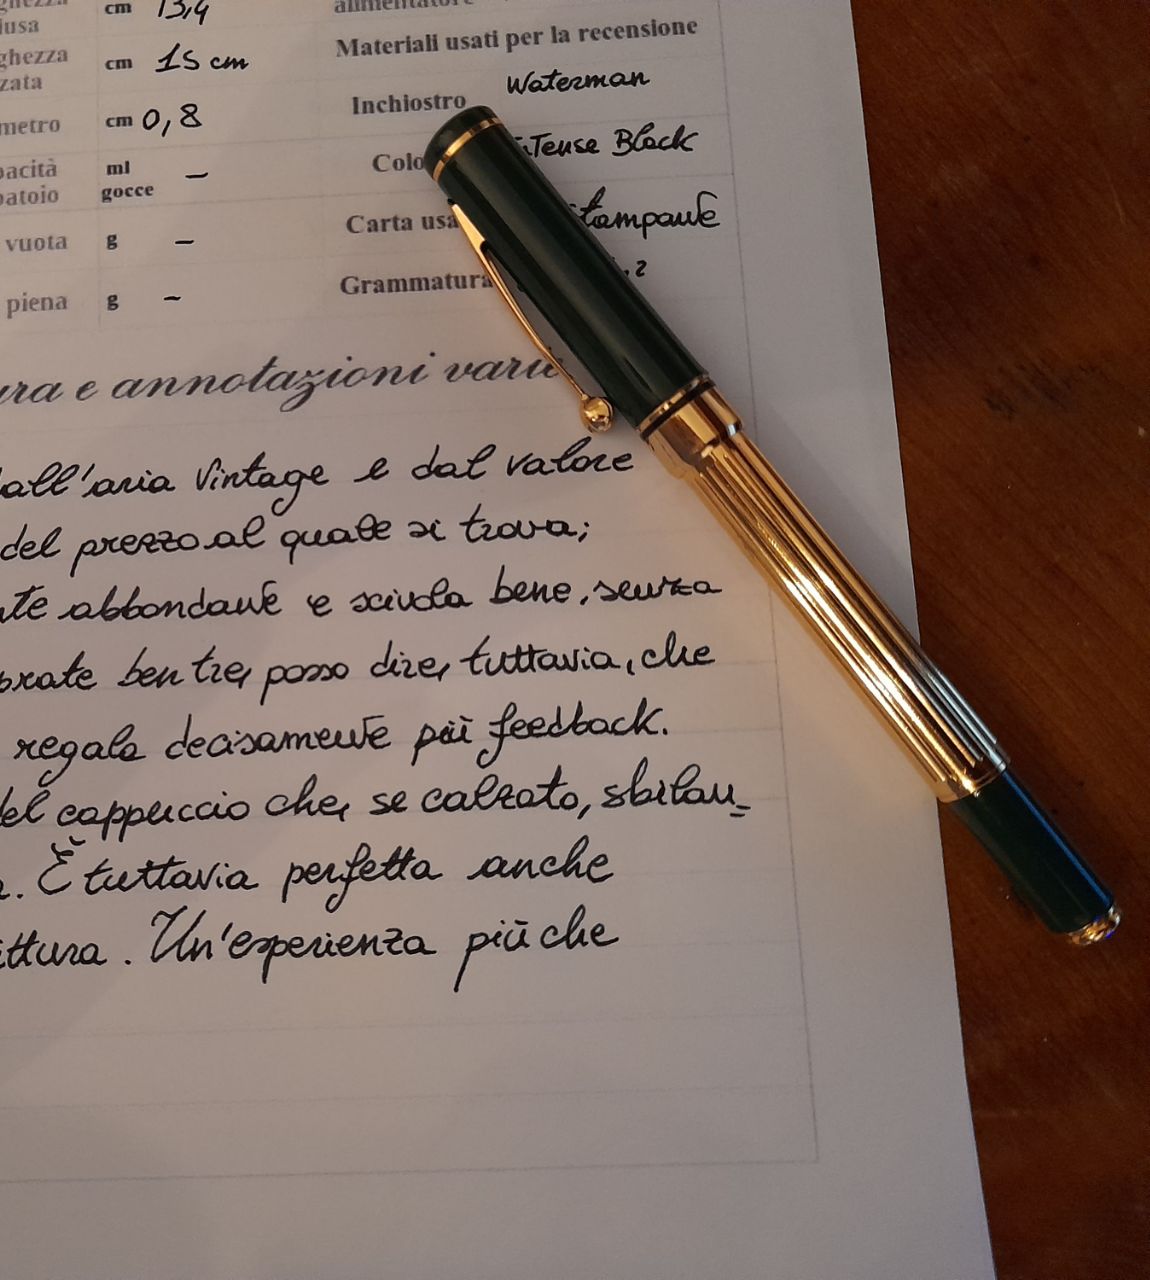 cm 13,4
iusa
alimentatore
ghezza cm 15 cm
zata
Materiali usati per la recensione
metro cm 0,8
Inchiostro Waterman
pacità ml
batoio gocce –
Colo ntense Black
vuota g –
Carta usa stampante
piena g –
Grammatura
ura e annotazioni varie
dall'aria vintage e dal valore
del prezzo al quale si trova;
nte abbondante e scivola bene, senza
brate ben tre, posso dire, tuttavia, che
regala decisamente più feedback.
del cappuccio che, se calzato, sbilan_
a. È tuttavia perfetta anche
ittura. Un'esperienza più che